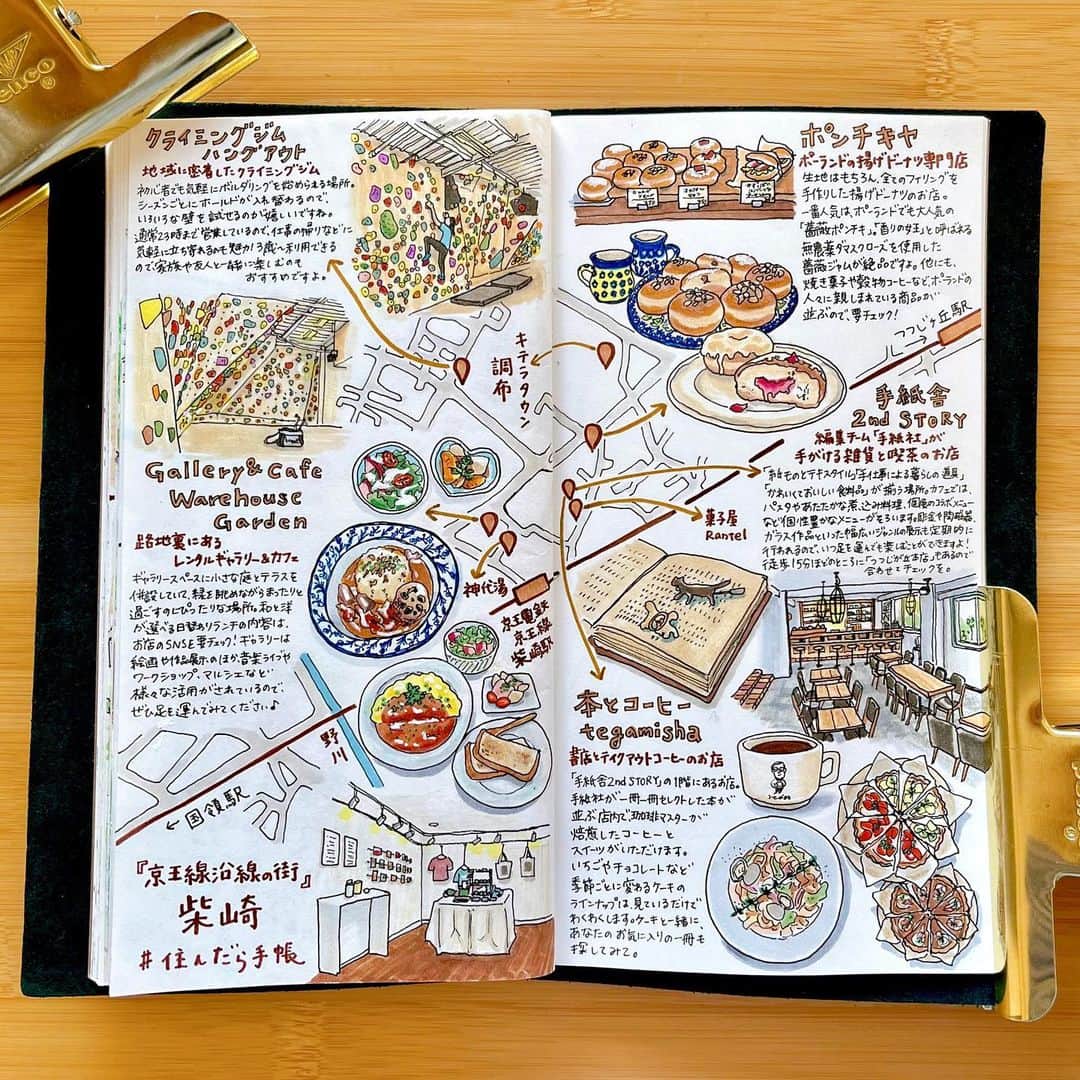 クライミングジム
ハングアウト
地域に密着したクライミングジム
初心者でも気軽にボルダリングを始められる場所。
シーズンごとにホールドが入れ替わるので、
いろいろな壁を試せるのが嬉しいですね。
通常23時まで営業しているので、仕事の帰りなどに
気軽に立ち寄れるのも魅力!3歳〜利用できる
ので、家族や友人と一緒に楽しむのも
おすすめですよ。
キテラタウン
調布
Gallery&Cafe
Warehouse
Garden
路地裏にある
レンタルギャラリー&カフェ
ギャラリースペースに小さな庭とテラスを
併設していて、緑を眺めながらまったりと
過ごすのにぴったりな場所。和と洋
が選べる日替わりランチの内容は、
お店のSNSを要チェック!ギャラリーは
絵画や作品展示のほか、音楽ライブや
ワークショップ、マルシェなど
様々な活用がされているので、
ぜひ足を運んでみてください♪
神代湯
京王電鉄
京王線
柴崎駅
野川
←国領駅
『京王線沿線の街』
柴崎
#住んだら手帳
ポンチキヤ
ポーランドの揚げドーナツ専門店
生地はもちろん、全てのフィリングを
手作りした揚げドーナツのお店。
一番人気は、ポーランドでも大人気の
「薔薇ポンチキ」。「香りの女王」と呼ばれる
無農薬ダマスクローズを使用した
薔薇ジャムが絶品ですよ。他にも、
焼き菓子や穀物コーヒーなど、ポーランドの
人々に親しまれている商品が
並ぶので、要チェック!
つつじヶ丘駅→
手紙舎
2nd STORY
編集チーム「手紙社」が
手がける雑貨と喫茶のお店
「紙ものとテキスタイル」「手仕事による暮らしの道具」
「かわいくておいしい食料品」が揃う場所。カフェでは、
パスタやあたたかな煮込み料理、個展のコラボメニュー
など個性豊かなメニューがそろいます。彫金や陶磁器、
ガラス作品といった幅広いジャンルの展示も定期的に
行われるので、いつ足を運んでも楽しむことができますよ!
徒歩15分ほどのところに「つつじヶ丘本店」もあるので
合わせてチェックを。
菓子屋
Rantel
本とコーヒー
tegamisha
書店とテイクアウトコーヒーのお店
「手紙舎2nd STORY」の1階にあるお店。
手紙社が一冊一冊セレクトした本が
並ぶ店内で、珈琲マスターが
焙煎したコーヒーと
スイーツがいただけます。
いちごやチョコレートなど
季節ごとに変わるケーキの
ラインナップは、見ているだけで
わくわくします。ケーキと一緒に、
あなたのお気に入りの一冊も
探してみて。